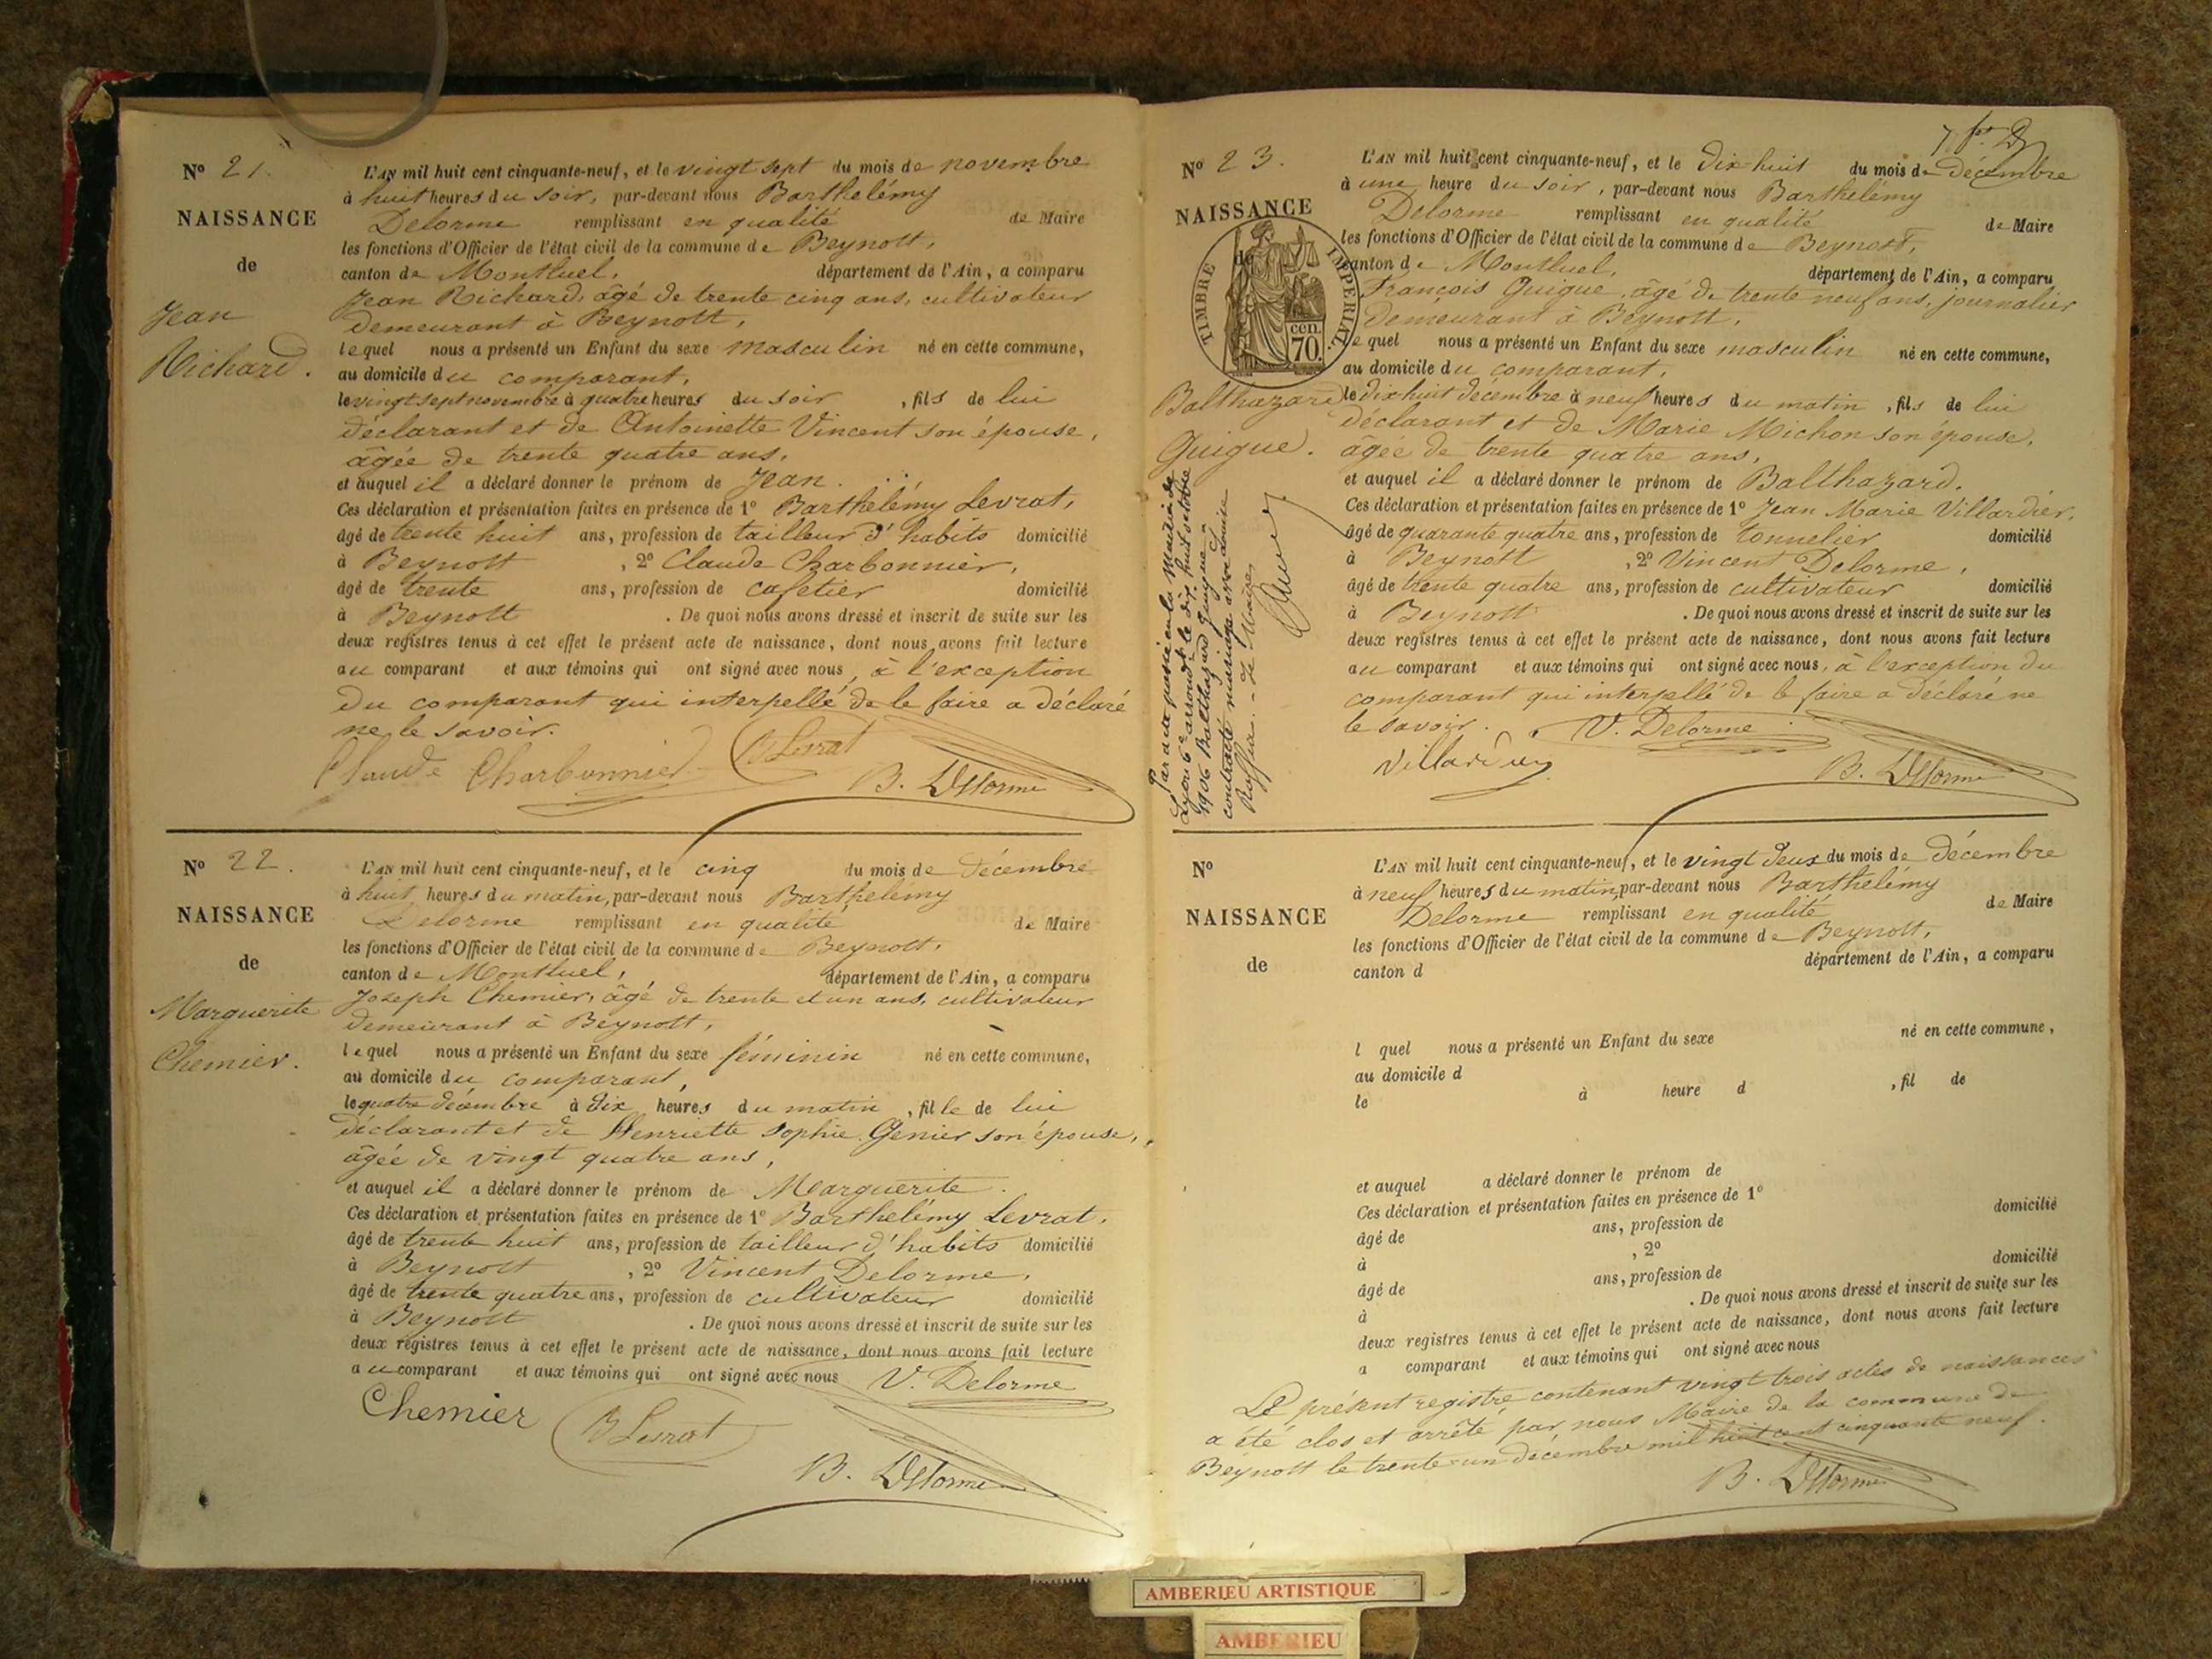 N° 21.
NAISSANCE
de
Jean
Richard.
L'AN mil huit cent cinquante-neuf, et le vingt sept du mois de novembre
à huit heures du soir, par-devant nous Barthelémy
Delorme remplissant en qualité de Maire
les fonctions d'Officier de l'état civil de la commune de Beynost,
canton de Montluel, département de l'Ain, a comparu
Jean Richard, âgé de trente cinq ans, cultivateur
demeurant à Beynost,
lequel nous a présenté un Enfant du sexe masculin né en cette commune,
au domicile du comparant,
le vingt sept novembre à quatre heures du soir, fils de lui
déclarant et de Antoinette Vincent son épouse,
âgée de trente quatre ans,
et auquel il a déclaré donner le prénom de Jean.
Ces déclaration et présentation faites en présence de 1° Barthélémy Levrat,
âgé de trente huit ans, profession de tailleur d'habits domicilié
à Beynost, 2° Claude Charbonnier,
âgé de trente ans, profession de cafetier domicilié
à Beynost. De quoi nous avons dressé et inscrit de suite sur les
deux registres tenus à cet effet le présent acte de naissance, dont nous avons fait lecture
au comparant et aux témoins qui ont signé avec nous, à l'exception
du comparant qui interpellé de le faire a déclaré
ne le savoir.
Claude Charbonnier B Levrat
B. Delorme
N° 22.
NAISSANCE
de
Marguerite
Chemier.
L'AN mil huit cent cinquante-neuf, et le cinq du mois de décembre
à huit heures du matin, par-devant nous Barthélémy
Delorme remplissant en qualité de Maire
les fonctions d'Officier de l'état civil de la commune de Beynost,
canton de Montluel, département de l'Ain, a comparu
Joseph Chemier, âgé de trente et un ans, cultivateur
demeurant à Beynost,
lequel nous a présenté un Enfant du sexe féminin né en cette commune,
au domicile du comparant,
le quatre décembre à dix heures du matin, fille de lui
déclarant et de Henriette Sophie Genier son épouse,
âgée de vingt quatre ans,
et auquel il a déclaré donner le prénom de Marguerite.
Ces déclaration et présentation faites en présence de 1° Barthélémy Levrat,
âgé de trente huit ans, profession de tailleur d'habits domicilié
à Beynost, 2° Vincent Delorme,
âgé de trente quatre ans, profession de cultivateur domicilié
à Beynost. De quoi nous avons dressé et inscrit de suite sur les
deux registres tenus à cet effet le présent acte de naissance, dont nous avons fait lecture
au comparant et aux témoins qui ont signé avec nous V. Delorme
Chemier B Levrat
B. Delorme
N° 23.
NAISSANCE
de
TIMBRE IMPÉRIAL
70 cen.
Balthazard
Guigue.
Par acte passé en la Mairie de
Lyon 6e arrondt le dix huit octobre
1906 Balthazard Guigue a
contracté mariage avec Louise
Le Maire,
L'AN mil huit cent cinquante-neuf, et le dix-huit du mois de décembre
à une heure du soir, par-devant nous Barthélémy
Delorme remplissant en qualité de Maire
les fonctions d'Officier de l'état civil de la commune de Beynost,
canton de Montluel, département de l'Ain, a comparu
François Guigue, âgé de trente neuf ans, journalier
demeurant à Beynost,
lequel nous a présenté un Enfant du sexe masculin né en cette commune,
au domicile du comparant,
le dix huit décembre à neuf heures du matin, fils de lui
déclarant et de Marie Michon son épouse,
âgée de trente quatre ans,
et auquel il a déclaré donner le prénom de Balthazard.
Ces déclaration et présentation faites en présence de 1° Jean Marie Villardier,
âgé de quarante quatre ans, profession de tonnelier domicilié
à Beynost, 2° Vincent Delorme,
âgé de trente quatre ans, profession de cultivateur domicilié
à Beynost. De quoi nous avons dressé et inscrit de suite sur les
deux registres tenus à cet effet le présent acte de naissance, dont nous avons fait lecture
au comparant et aux témoins qui ont signé avec nous, à l'exception du
comparant qui interpellé de le faire a déclaré ne
le savoir. V. Delorme
Villardier B. Delorme
N°
NAISSANCE
de
L'AN mil huit cent cinquante-neuf, et le vingt deux du mois de décembre
à neuf heures du matin, par-devant nous Barthélémy
Delorme remplissant en qualité de Maire
les fonctions d'Officier de l'état civil de la commune de Beynost,
canton d département de l'Ain, a comparu
l quel nous a présenté un Enfant du sexe né en cette commune,
au domicile d
le à heure d , fil de
et auquel a déclaré donner le prénom de
Ces déclaration et présentation faites en présence de 1°
âgé de ans, profession de domicilié
à , 2°
âgé de ans, profession de domicilié
à . De quoi nous avons dressé et inscrit de suite sur les
deux registres tenus à cet effet le présent acte de naissance, dont nous avons fait lecture
a comparant et aux témoins qui ont signé avec nous
Le présent registre contenant vingt trois actes de naissances
a été clos et arrêté par nous Maire de la commune de
Beynost le trente-un décembre mil huit cent cinquante neuf.
B. Delorme
AMBERIEU ARTISTIQUE
AMBERIEU